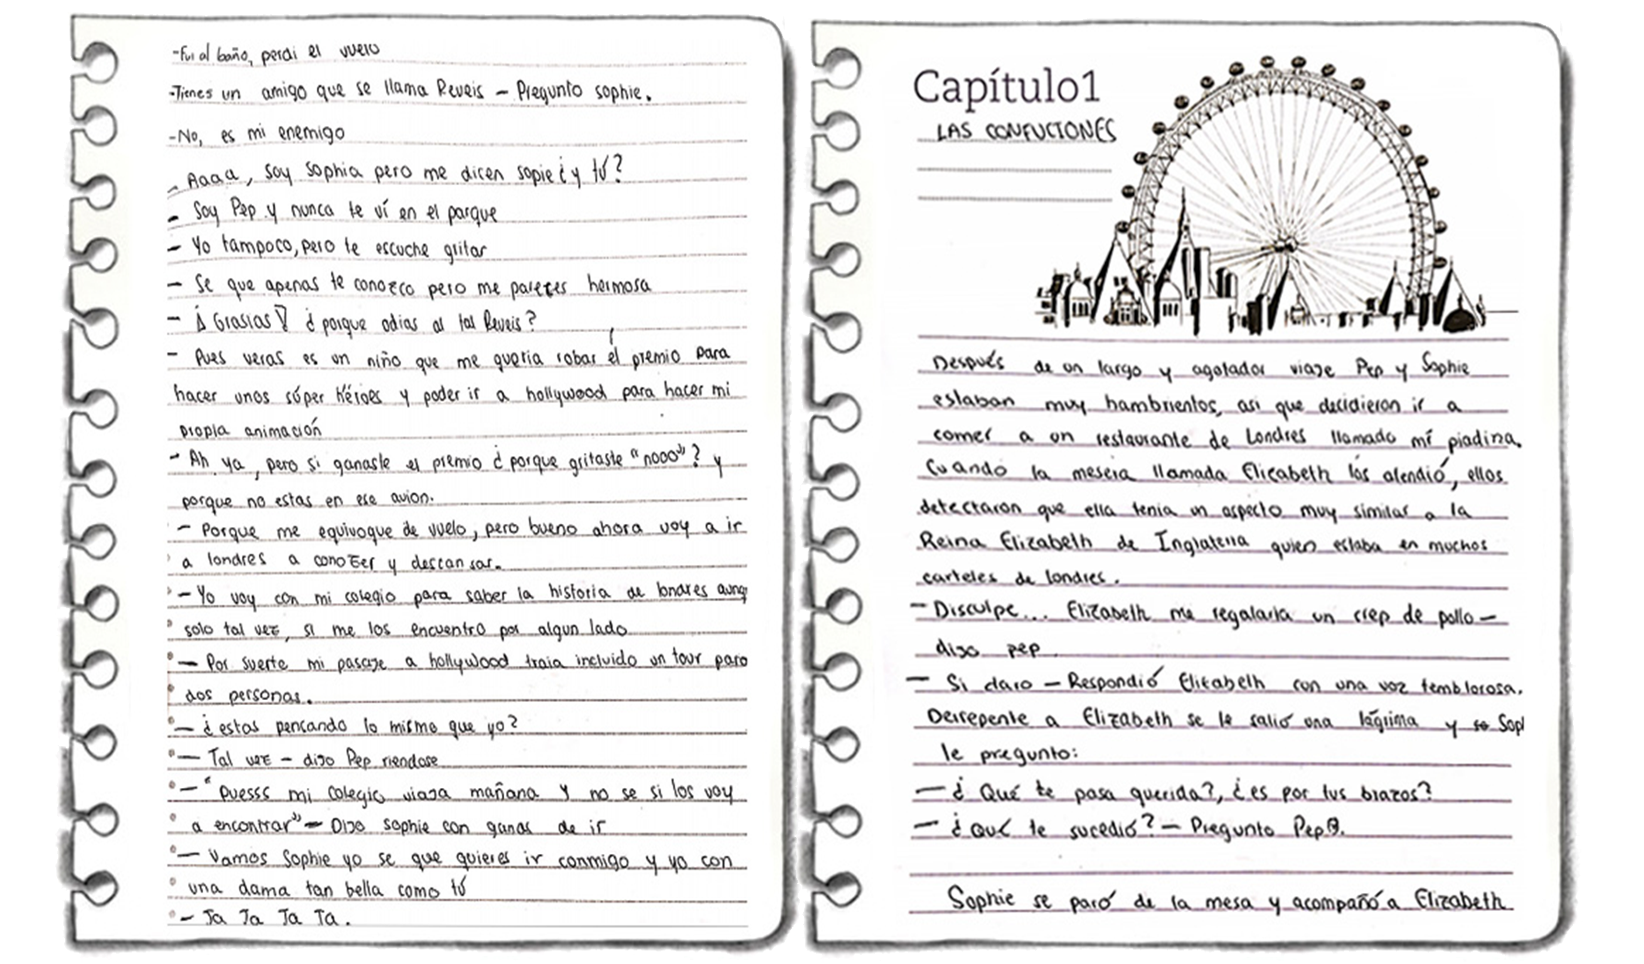 -Fui al baño, perdi el vuelo
-Tienes un amigo que se llama Reveis - Pregunto sophie.
-No, es mi enemigo
- Aaaa, soy sophia pero me dicen sopie ¿y tú?
- Soy Pep y nunca te ví en el parque
- Yo tampoco, pero te escuche gritar
- Se que apenas te conozco pero me pareces hermosa
- ¡Grasias! ¿porque odias al tal Reveis?
- Pues veras es un niño que me queria robar el premio para
hacer unos súper Héroes y poder ir a hollywood para hacer mi
propia animación
- Ah ya, pero si ganaste el premio ¿porque gritaste "nooo"? y
porque no estas en ese avion.
- Porque me equivoque de vuelo, pero bueno ahora voy a ir
a londres a conozer y descansar.
- Yo voy con mi colegio para saber la historia de londres aunq
solo tal vez, si me los encuentro por algun lado
- Por suerte mi pasaje a hollywood traia incluido un tour para
dos personas.
- ¿estas pensando lo mismo que yo?
- Tal vez - dijo Pep riendose
- "Puesss mi colegio viaja mañana y no se si los voy
a encontrar" - Dijo sophie con ganas de ir
- Vamos Sophie yo se que quieres ir conmigo y yo con
una dama tan bella como tú
- Ja Ja Ja Ja.
Capítulo1
LAS CONFUCIONES
Después de un largo y agotador viaje Pep y Sophie
estaban muy hambrientos, asi que decidieron ir a
comer a un restaurante de Londres llamado mí piadina.
Cuando la mesera llamada Elizabeth lós atendió, ellos
detectaron que ella tenia un aspecto muy similar a la
Reina Elizabeth de Inglaterra quien estaba en muchos
carteles de londres.
- Disculpe... Elizabeth me regalaria un crep de pollo -
dijo pep
- Si claro - Respondió Elizabeth con una voz temblorosa.
Derrepente a Elizabeth se le salió una lágrima y so Sopl
le pregunto:
- ¿Qué te pasa querida?, ¿es por tus brazos?
- ¿Qué te sucedió? - Pregunto Pep.
Sophie se paró de la mesa y acompañó a Elizabeth